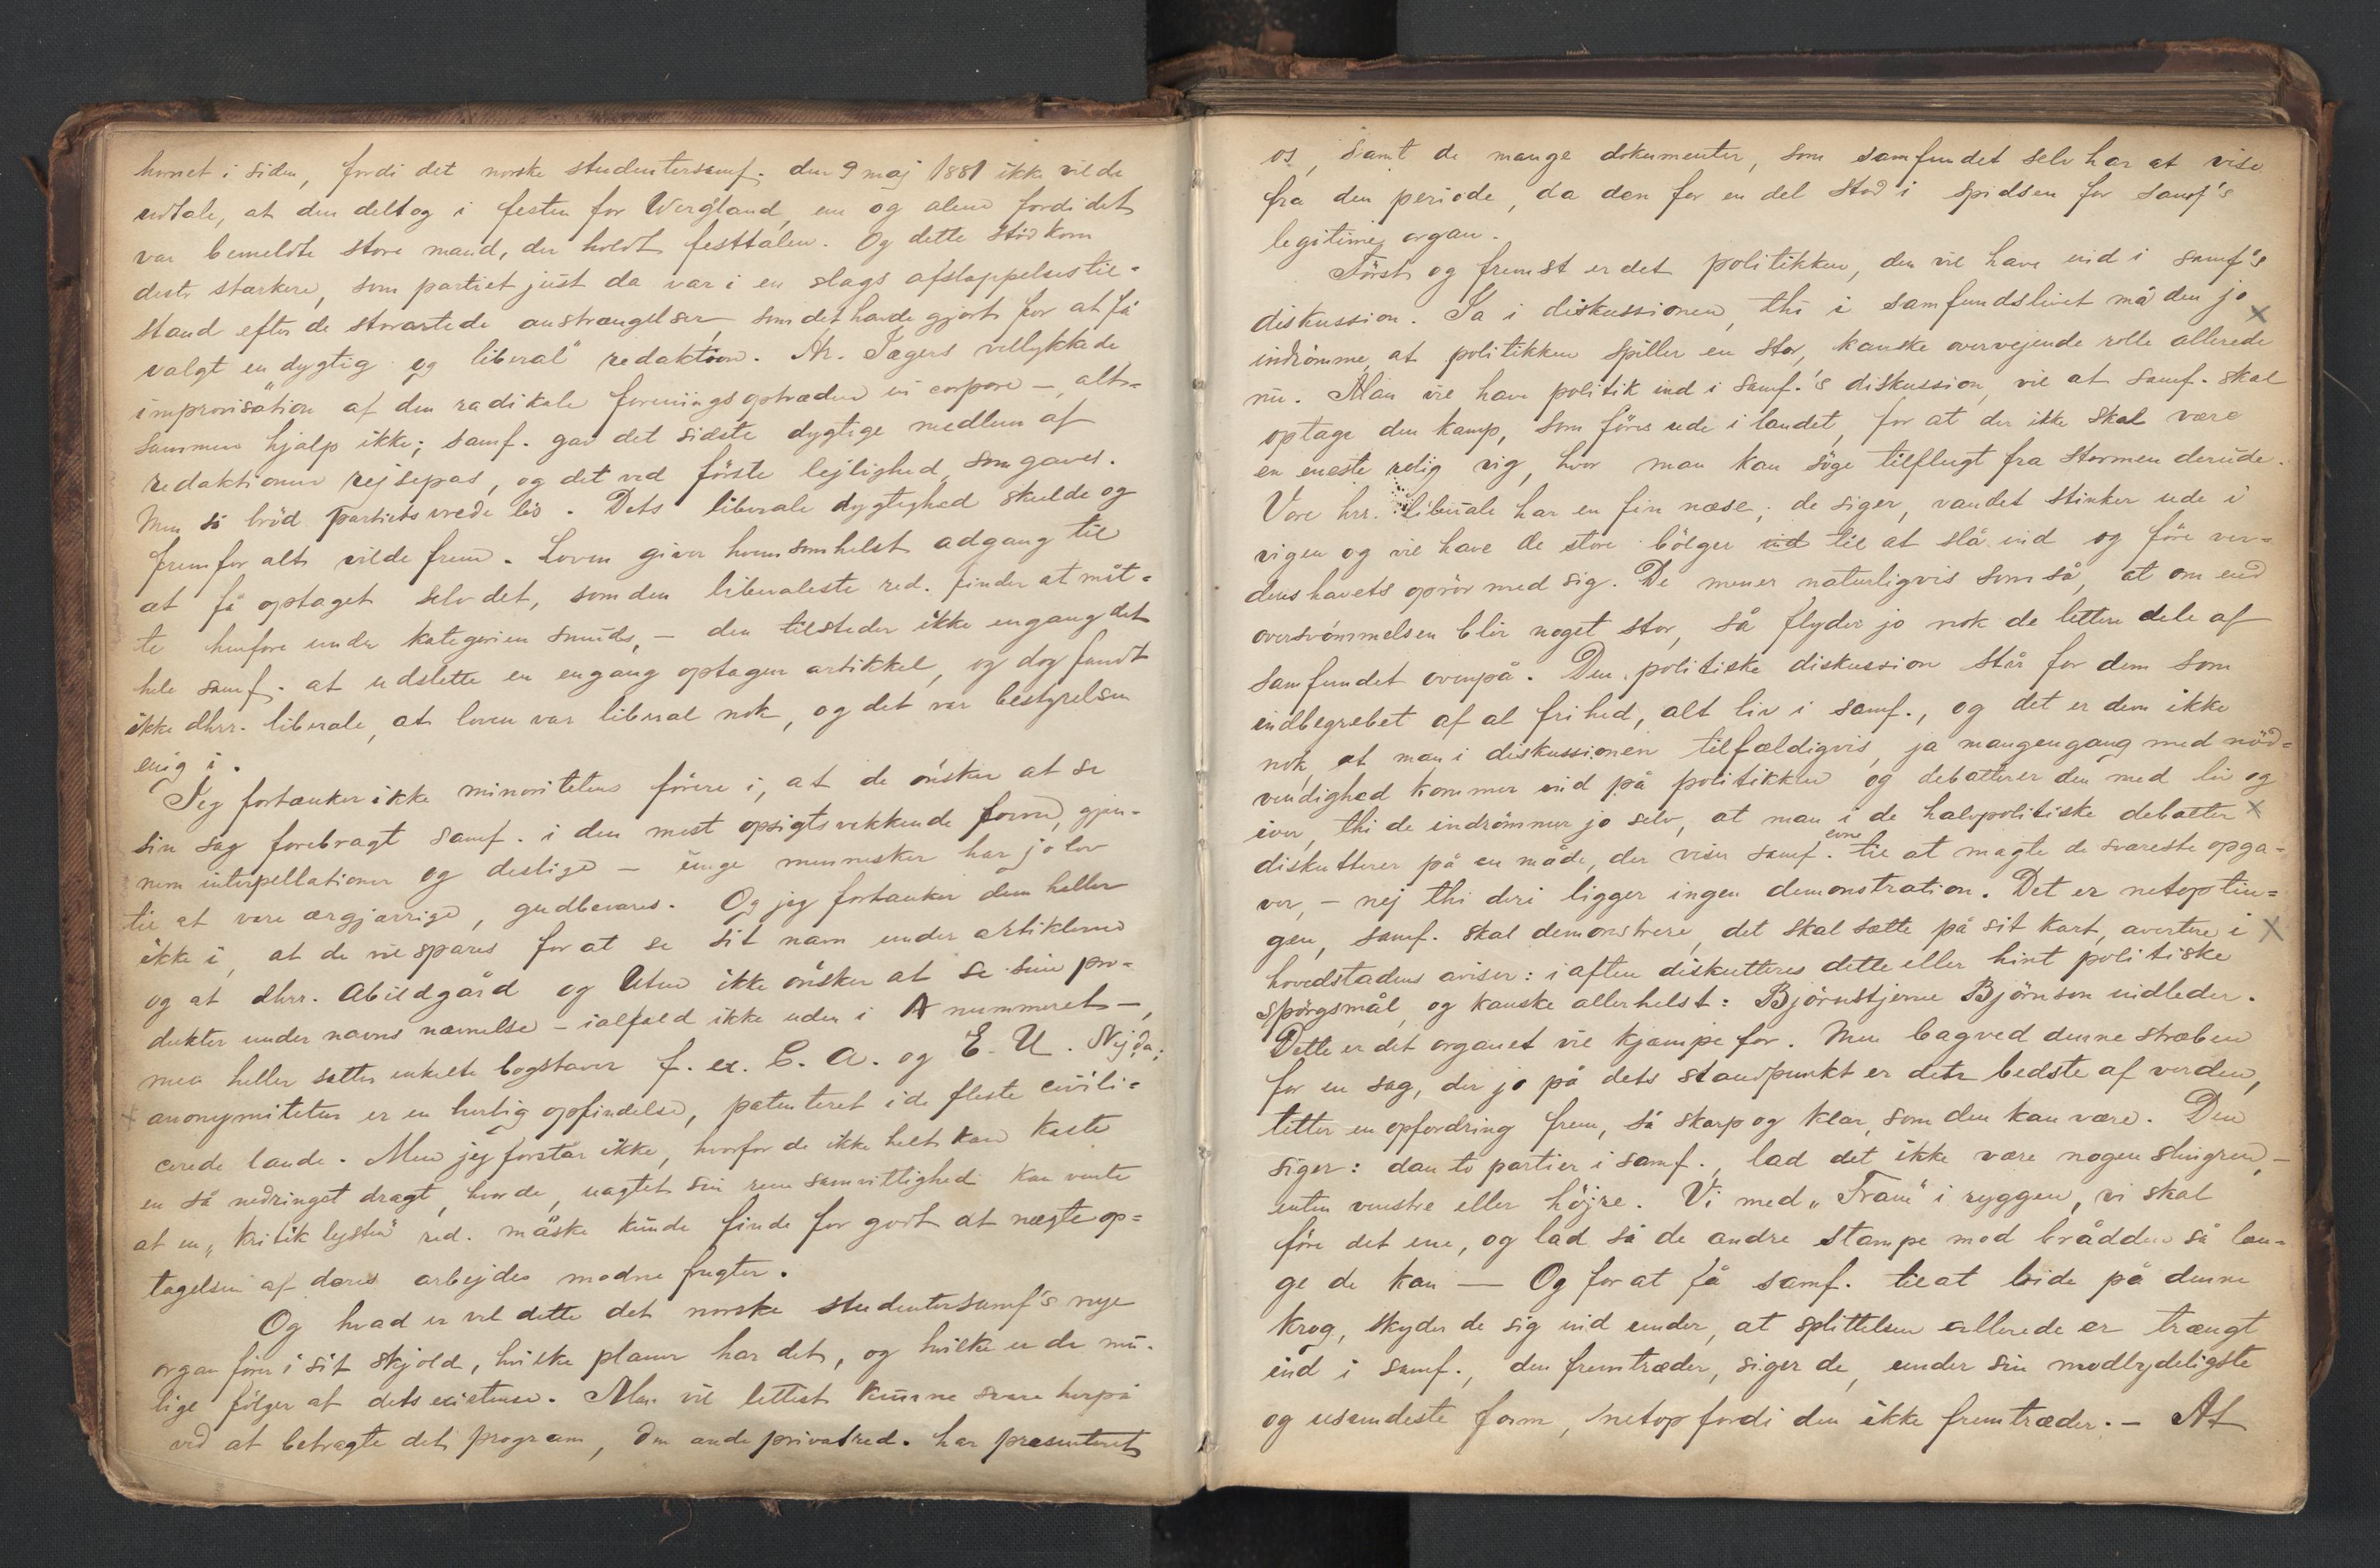 hornet i siden, fordi det norske studentersamf. den 9 maj 1881 ikke vilde
udtale, at den deltog i festen for Wergland, ene og alene fordi det
var bemeldte store mand, der holdt festtalen. Og dette stød kom
desto stærkere, som partiet just da var i en slags afslappelsestil-
stand efter de storartede anstrængelser som det havde gjort for at få
valgt en "dygtig og liberal" redaktion. Hr. Jægers vellykkede
improvisation af den radikale forenings optræden in corpore —, alt-
sammen hjalp ikke; samf. gav det sidste dygtige medlem af
redaktionen rejsepas, og det ved förste lejlighed, som gaves.
Men så bröd partiets vrede lös. Dets liberale dygtighed skulde og
fremfor alt vilde frem. Loven giver hvemsomhelst adgang til
at få optaget selv det, som den liberaleste red. finder at måt-
te henføre under kategorien smuds, — den tilsteder ikke engang det
hele samf. at udslette en engang optagen artikkel, og dog fandt
ikke dhrr. liberale, at loven var liberal nok, og det var bestyrelsen
enig i.
Jeg fortænker ikke minoritetens förere i, at de ønsker at se
sin sag forebragt samf. i den mest opsigtsvekkende form, gjen-
nem interpellationer og deslige — unge mennesker har jo lov
til at være ærgjærrige, gudbevares. Og jeg fortænker dem heller
ikke i, at de vil spares for at se sit navn under artiklerne
og at dhrr. Abildgård og Utne ikke ønsker at se sine pro-
dukter under navns nævnelse — ialfald ikke uden i A nummeret —,
men heller setter enkelte bogstaver f. ex. C. A. og E. U. Nejda;
anonymiteten er en herlig opfindelse, patenteret i de fleste civili-
cerede lande. Men jeg forstår ikke, hvorfor de ikke helt kan kaste
en så nedringet dragt, hvor de, uagtet sin rene samvittighed kan vente
at en „kritik lysten" red. måske kunde finde for godt at nægte op-
tagelsen af deres arbejdes modne frugter.
Og hvad er vel dette det norske studentersamf's nye
organ förer i sit skjold, hvilke planer har det, og hvilke er de mu-
lige fölger af dets existense. Man vil lettest kunne svare herpå
ved at betragte det program, den ande privatred. har præsenteret
os, samt de mange dokumenter, som samfundet selv har at vise
fra den periode, da den for en del stod i spidsen for samf's
legitime organ.
Först og fremst er det politikken, den vil have ind i samf's
diskussion. Ja i diskussionen, thi i samfundslivet må den jo
indrömme, at politikken spiller en stor, kanske overvejende rolle allerede
nu. Man vil have politik ind i samf.'s diskussion, vil at samf. skal
optage den kamp, som föres ude i landet, for at der ikke skal være
en eneste rolig vig, hvor man kan söge tilflugt fra stormen derude.
Vore hrr. liberale har en fin næse; de siger, vandet stinker ude i
vigen og vil have de store bölger ind til at slå ind og före ver-
denshavets oprör med sig. De mener naturligvis som så, at om end
oversvömmelsen blir noget stor, så flyder jo nok de lettere dele af
samfundet ovenpå. Den politiske diskussion står for dem som
indbegrebet af al frihed, alt liv i samf., og det er dem ikke
nok, at man i diskussionen tilfældigvis, ja mangengang med nöd-
vendighed kommer ind på politikken og debatterer den med liv og
iver, thi de indrömmer jo selv, at man i de halvpolitiske debatter
diskutterer på en måde, der viser samf. evne til at magte de sværeste opga-
ver, — nej thi deri ligger ingen demonstration. Det er netop tin-
gen, samf. skal demonstrere, det skal sætte på sit kart, avertere i
hovedstadens aviser: i aften diskutteres dette eller hint politiske
spörgsmål, og kanske allerhelst: Björnstjerne Björnson indleder.
Dette er det organet vil kjæmpe for. Men bagved denne stræben
for en sag, der jo på dets standpunkt er dets bedste af verden,
titter en opfordring frem, så skarp og klar, som den kan være. Den
siger: dan to partier i samf., lad det ikke være nogen slingren, —
enten venstre eller höjre. Vi med „Fram" i ryggen, vi skal
före det ene, og lad så de andre stampe mod brådden så læn-
ge de kan — Og for at få samf. til at bide på denne
krog, skyder de sig ind under, at splittelsen allerede er trængt
ind i samf., den fremtræder, siger de, under sin modbydeligste
og usundeste form, netop fordi den ikke fremtræder. — At